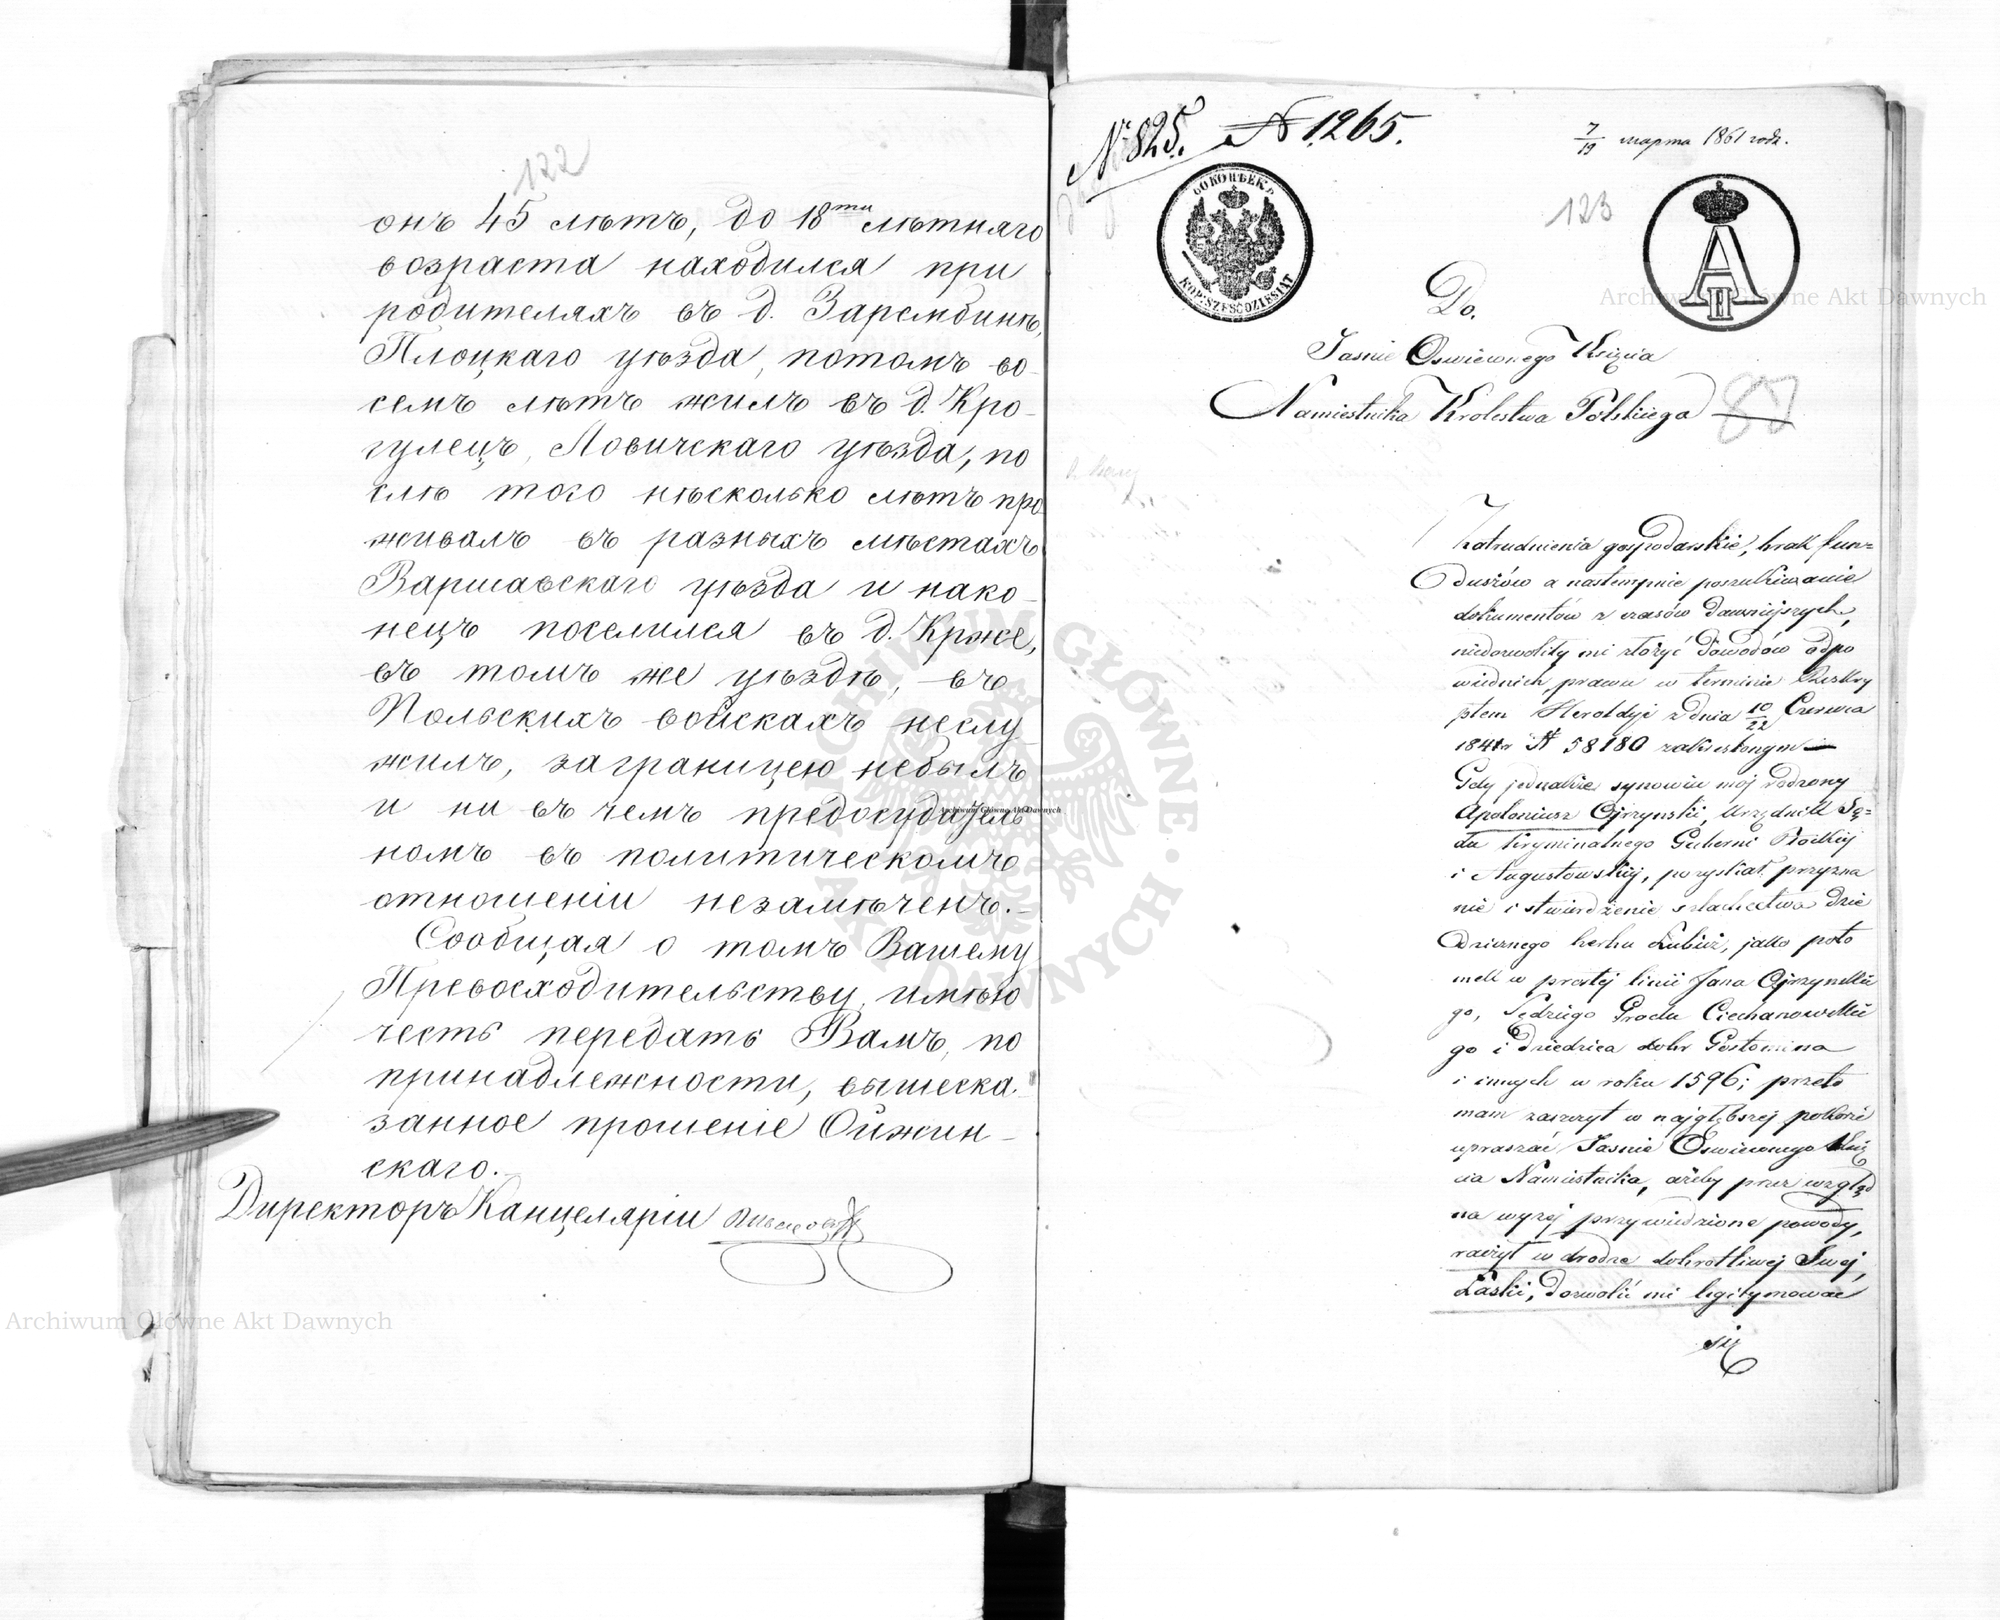 122
онъ 45 лѣтъ, до 18ти лѣтняго
возраста находился при
родителяхъ въ д. Зарембинѣ,
Плоцкаго уѣзда, потомъ во-
семъ лѣтъ жилъ въ д. Кро-
гулецъ, Ловичскаго уѣзда, по
слѣ того нѣсколько лѣтъ про
живалъ въ разныхъ мѣстахъ
Варшавскаго уѣзда и нако-
нецъ поселился въ д. Крже,
въ томъ же уѣздѣ, въ
Польскихъ войскахъ неслу
жилъ, заграницею небылъ
и ни въ чемъ предосудитель
номъ въ политическомъ
отношеніи незамѣченъ.-
Сообщая о томъ Вашему
Превосходительству, имѣю
честь передать Вамъ, по
принадлежности, вышеска-
занное прошеніе Ойжин-
скаго.-
Директоръ Канцеляріи
№ 825. № 1265.
7/19 марта 1861 года.
123
60 КОПѢЕКЪ
KOP: SZEŚĆDZIESIĄT
A II
Do.
Jasnie Oswieconego Księcia
Namiestnika Krolestwa Polskiego
87
Zatrudnienia gospodarskie, brak fun=
duszów a nastempnie poszukiwanie
dokumentów z czasów dawniejszych,
niedozwoliły mi złożyć dowodów odpo
wiednich prawu w terminie Reskry
ptem Heroldyi z dnia 10/22 Czerwca
1841r N 58180 zakreslonym —
Gdy jednakże synowiec mój rodzony
Apoloniusz Ojrzynski, Urzędnik Są=
du Kryminalnego Guberni Płockiej
i Augustowskiej, pozyskał przyzna
nie i stwierdzenie szlachectwa dzie
dzicznego herbu Lubicz, jako poto
mek w prostej linii Jana Ojrzynskie
go, Sędziego Grodu Ciechanowskie
go i dziedzica dobr Gostomina
i innych w roku 1596; przeto
mam zaszczyt w najgłębszej pokorze
upraszać Jasnie Oswieconego Księ
cia Namiestnika, ażeby przez wzgląd
na wyżej przywiedzione powody,
raczył w drodze dobrotliwej Swej
Łaski, dozwolić mi legitymować
się
Archiwum Główne Akt Dawnych
Archiwum Główne Akt Dawnych
Archiwum Główne Akt Dawnych
ARCHIWUM GŁÓWNE AKT DAWNYCH